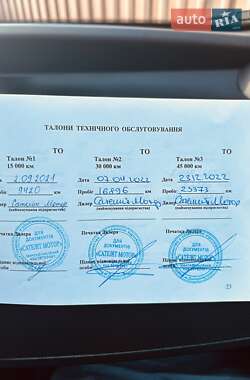 auto RIA
ТАЛОНИ ТЕХНІЧНОГО ОБСЛУГОВУВАННЯ
ТО ТО ТО
Талон №1 Талон №2 Талон №3
15 000 км 30 000 км 45 000 км
Дата 2.09.2021 Дата 07.04.2022 Дата 23.12.2022
Пробіг 9420 км Пробіг 16896 км Пробіг 25373 км
Дилер Сателіт Мотор Дилер Сателіт Мотор Дилер Сателіт Мотор
(найменування підприємства) (найменування підприємства) (найменування підприємства)
Печатка Дилера Печатка Дилера Печатка Дилера
ДЛЯ ДОКУМЕНТІВ ДЛЯ ДОКУМЕНТІВ ДЛЯ ДОКУМЕНТІВ
«САТЕЛІТ МОТОР» «САТЕЛІТ МОТОР» «САТЕЛІТ МОТОР»
23